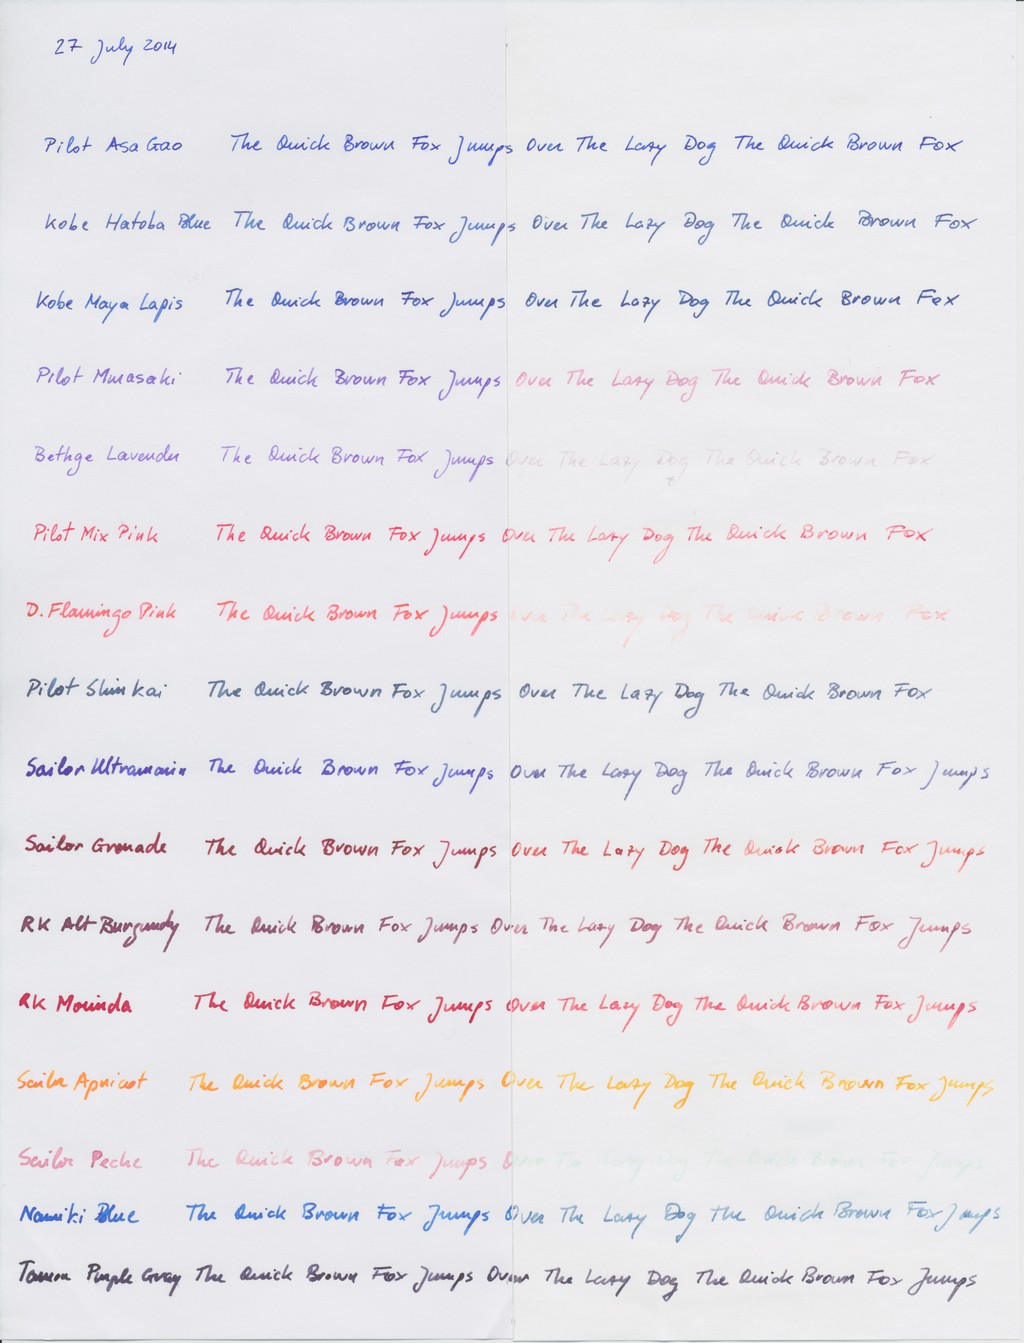 27 July 2014
Pilot Asa Gao The Quick Brown Fox Jumps Over The Lazy Dog The Quick Brown Fox
Kobe Hatoba Blue The Quick Brown Fox Jumps Over The Lazy Dog The Quick Brown Fox
Kobe Maya Lapis The Quick Brown Fox Jumps Over The Lazy Dog The Quick Brown Fox
Pilot Murasaki The Quick Brown Fox Jumps Over The Lazy Dog The Quick Brown Fox
Bethge Lavender The Quick Brown Fox Jumps Over The Lazy Dog The Quick Brown Fox
Pilot Mix Pink The Quick Brown Fox Jumps Over The Lazy Dog The Quick Brown Fox
D. Flamingo Pink The Quick Brown Fox Jumps Over The Lazy Dog The Quick Brown Fox
Pilot Shin kai The Quick Brown Fox Jumps Over The Lazy Dog The Quick Brown Fox
Sailor Ultramarin The Quick Brown Fox Jumps Over The Lazy Dog The Quick Brown Fox Jumps
Sailor Grenade The Quick Brown Fox Jumps Over The Lazy Dog The Quick Brown Fox Jumps
RK Alt Burgundy The Quick Brown Fox Jumps Over The Lazy Dog The Quick Brown Fox Jumps
RK Morinda The Quick Brown Fox Jumps Over The Lazy Dog The Quick Brown Fox Jumps
Sailor Apricot The Quick Brown Fox Jumps Over The Lazy Dog The Quick Brown Fox Jumps
Sailor Peche The Quick Brown Fox Jumps Over The Lazy Dog The Quick Brown Fox Jumps
Namiki Blue The Quick Brown Fox Jumps Over The Lazy Dog The Quick Brown Fox Jumps
Purple Gray The Quick Brown Fox Jumps Over The Lazy Dog The Quick Brown Fox Jumps